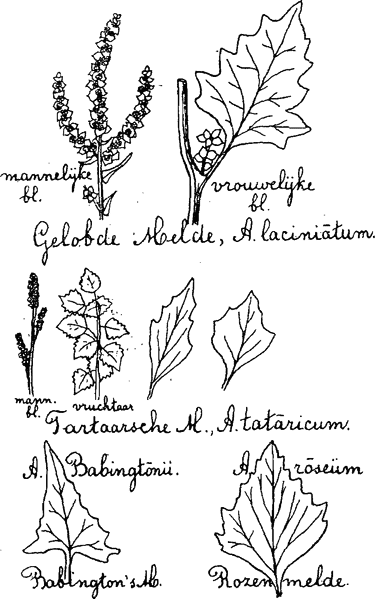 mannelijke
bl.
vrouwelijke
bl.
Gelobde Melde, A. laciniātum.
mann.
bl.
vruchtaar
Tartaarsche M., A. tatāricum.
A. Babingtōnii.
A. rōsëum
Babington's M.
Rozenmelde.